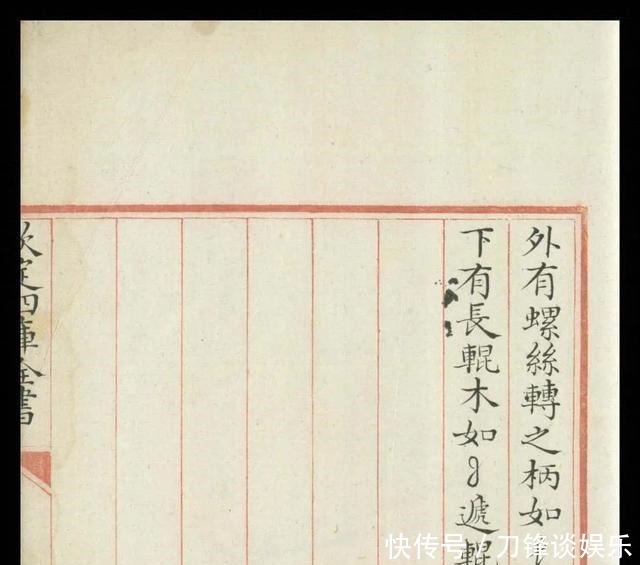 外有螺絲轉之柄如
下有長輥木如〥遞輥
欽定四庫全書
快传号/刀锋谈娱乐